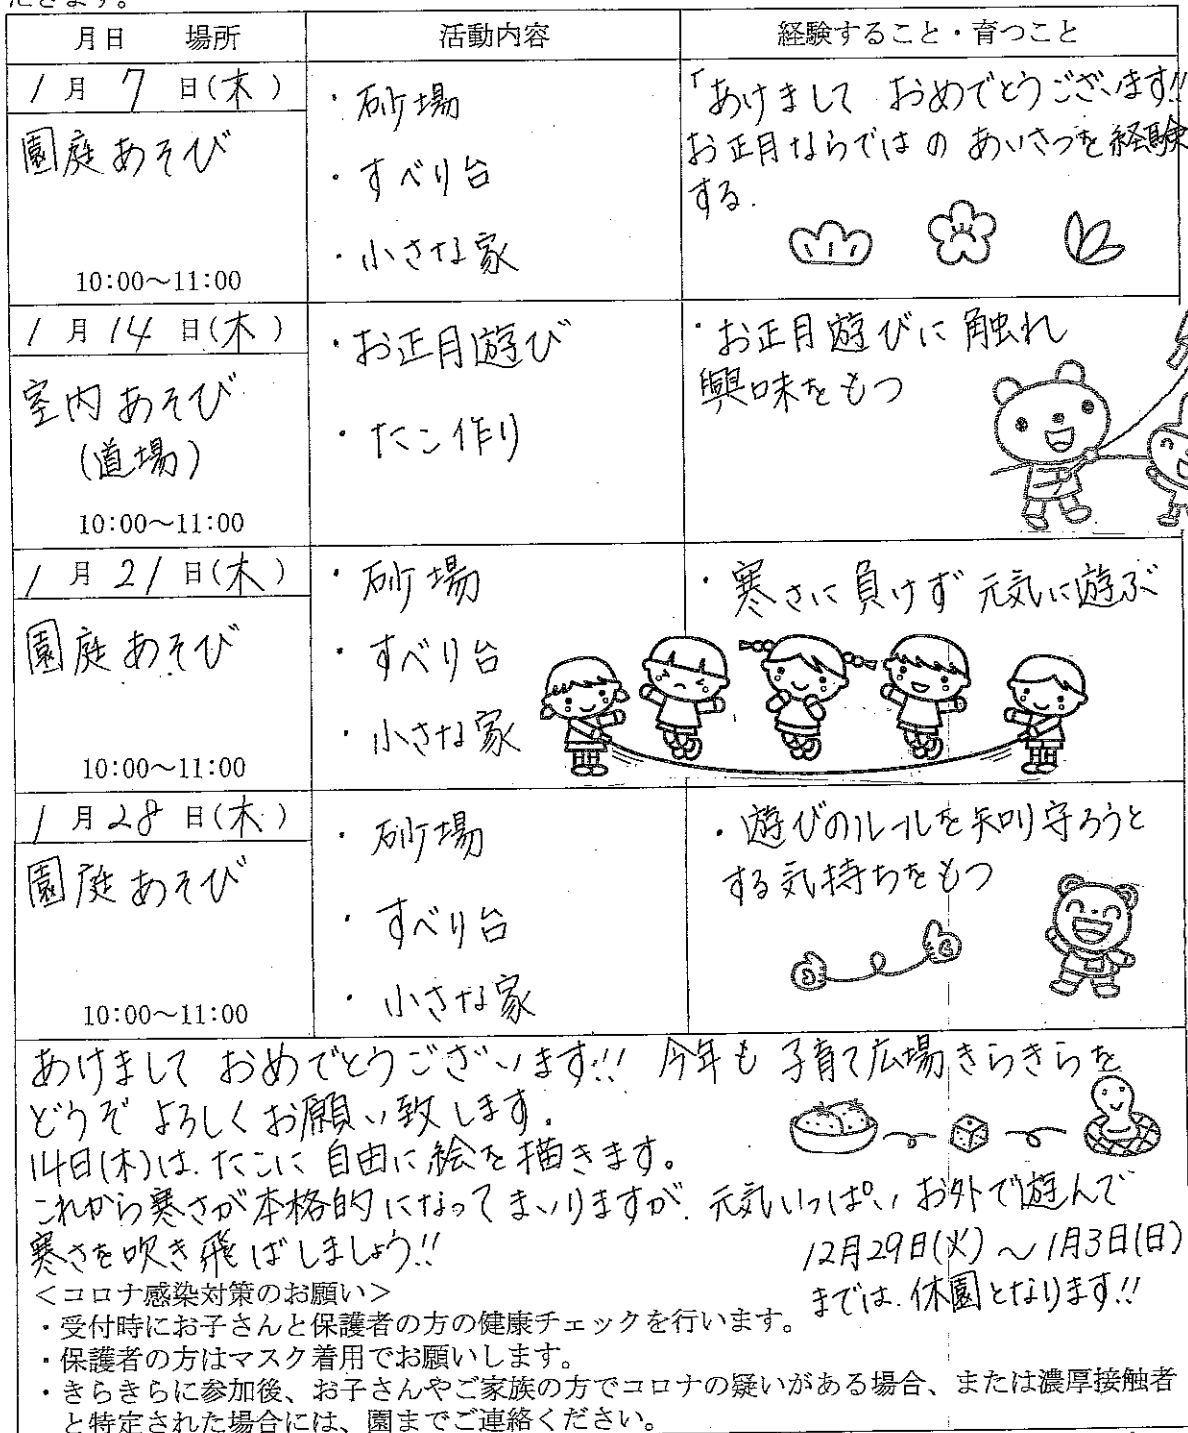 だきます。
月日　場所　活動内容　経験すること・育つこと
1月7日(木)
園庭あそび
10:00～11:00
・砂場
・すべり台
・小さな家
「あけまして おめでとうございます!!
お正月ならではの あいさつを経験
する.
1月14日(木)
室内あそび
(道場)
10:00～11:00
・お正月遊び
・たこ作り
・お正月遊びに触れ
興味をもつ
1月21日(木)
園庭あそび
10:00～11:00
・砂場
・すべり台
・小さな家
・寒さに負けず 元気に遊ぶ
1月28日(木)
園庭あそび
10:00～11:00
・砂場
・すべり台
・小さな家
・遊びのルールを知り守ろうと
する気持ちをもつ
あけまして おめでとうございます!! 今年も 子育て広場きらきらを
どうぞ よろしくお願い致します.
14日(木)は.たこに 自由に絵を描きます。
これから寒さが本格的になってまいりますが. 元気いっぱい お外で遊んで
寒さを吹き飛ばしましょう!!
12月29日(火)～1月3日(日)
までは.休園となります!!
＜コロナ感染対策のお願い＞
・受付時にお子さんと保護者の方の健康チェックを行います。
・保護者の方はマスク着用でお願いします。
・きらきらに参加後、お子さんやご家族の方でコロナの疑いがある場合、または濃厚接触者
と特定された場合には、園までご連絡ください。